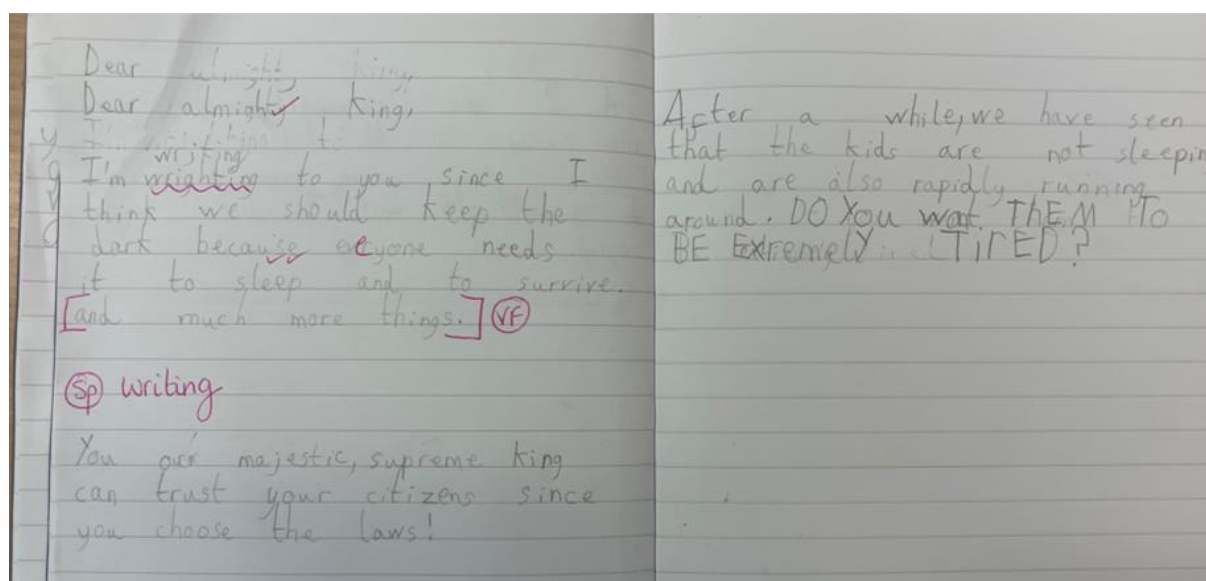 Dear almighty king,
Dear almighty king,
I'm to
writing
I'm wrighting to you since I
think we should keep the
dark because eeyone needs
it to sleep and to survive.
[and much more things.] VF
Sp writing
You our majestic, supreme king
can trust your citizens since
you choose the laws!
After a while, we have seen
that the kids are not sleepin
and are also rapidly running
around. DO YOU wat ThEM TO
BE ExtremelY TiRED?